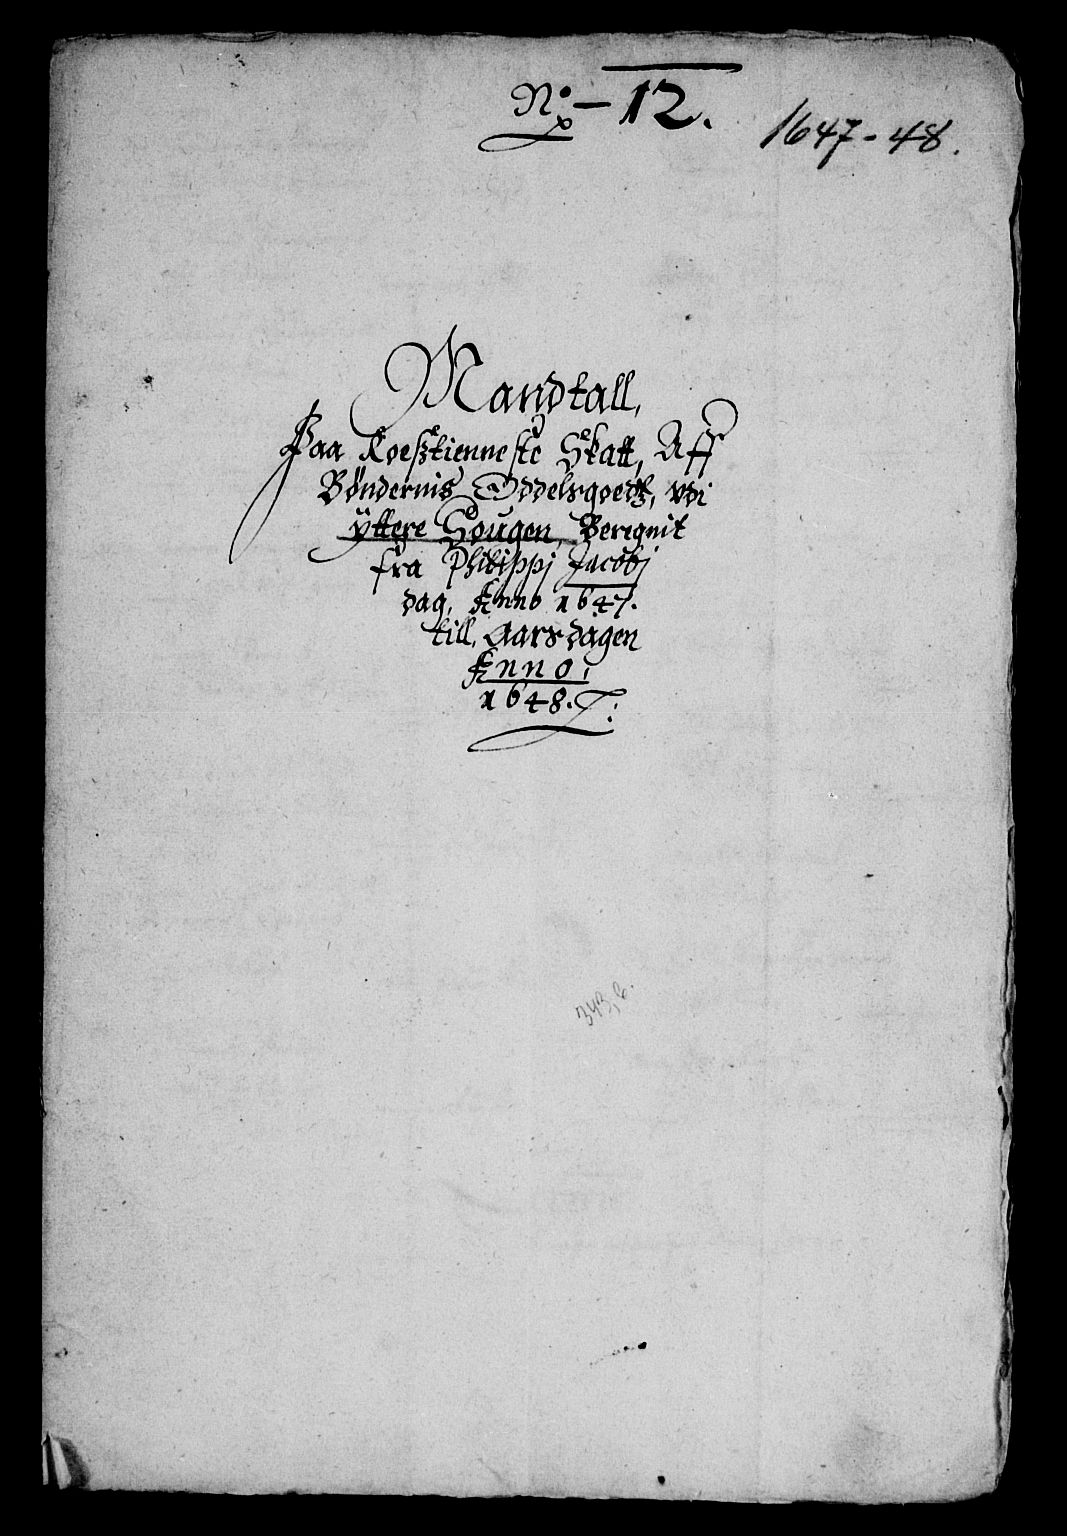 No: - 12.
1647-48.
Mandtall,
Paa Roesztienneste Skatt, Aff
Bøndernis Oddelsgoedtz, vdi
Yttere Sougen, Beregnit
fra Philippj Jacobj
dag, Anno 1647.
till, Aarsdagen
Anno,
1648.
343,6.